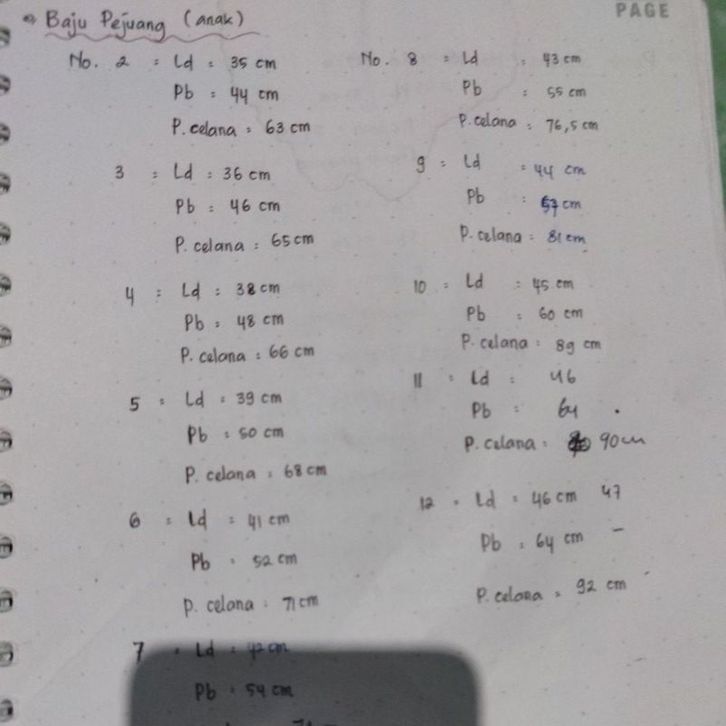 PAGE
Baju Pejuang (anak)
No. 2 : Ld : 35 cm
Pb : 44 cm
P. celana : 63 cm
3 : Ld : 36 cm
Pb : 46 cm
P. celana : 65 cm
4 : Ld : 38 cm
Pb : 48 cm
P. celana : 66 cm
5 : Ld : 39 cm
Pb : 50 cm
P. celana : 68 cm
6 : Ld : 41 cm
Pb : 52 cm
P. celana : 71 cm
7 : Ld : 42 cm
Pb : 54 cm
No. 8 : Ld : 43 cm
Pb : 55 cm
P. celana : 76,5 cm
9 : Ld : 44 cm
Pb : 57 cm
P. celana : 81 cm
10 : Ld : 45 cm
Pb : 60 cm
P. celana : 89 cm
11 : Ld : 46
Pb : 64 .
P. celana : 90 cm
12 : Ld : 46 cm 47
Pb : 64 cm -
P. celana : 92 cm